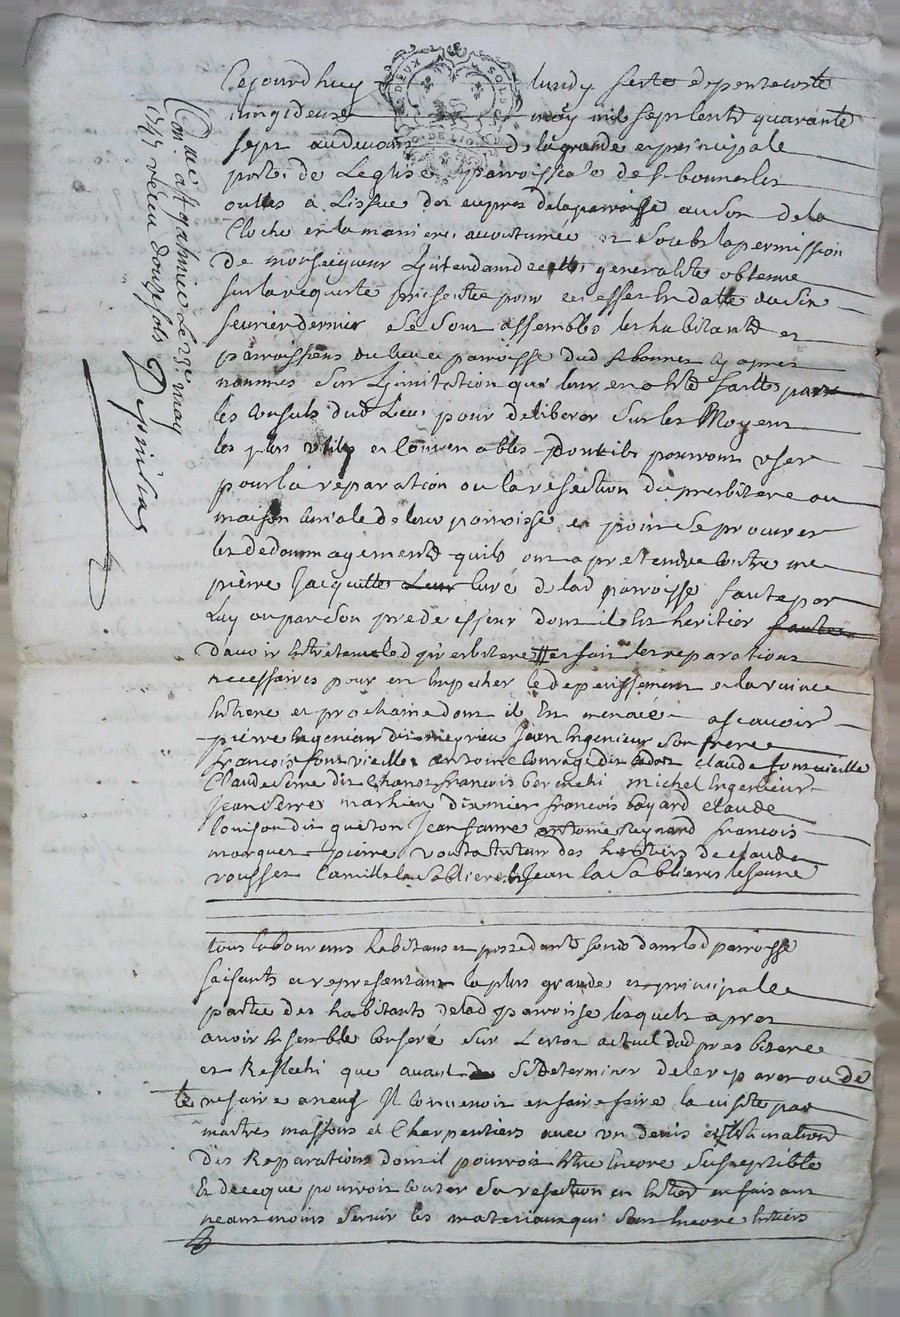 Cejourdhuy lundy feste depentecoste
vingtdeux may mil sept cent quarante
sept audevant delagrande et principale
porte de Leglise parroissiale de St bonnet les
oulles a Lissue des vespres delaparroisse au son dela
Cloche en la maniere accoutumée et soubs la permission
De monseigneur Lintendant de cette generalité obtenue
sur la requeste presentée pour cet effet en datte du six
fevrier dernier se sont assemblés les habitants et
parroissiens du lieu et parroisse dud St bonnet cy apres
nommés sur Linvitation qui leur en a été faitte par
les Consuls dud Lieu pour deliberer sur les Moyens
les plus utils et convenables dont ils pourront user
pour la reparation ou la refection du presbitere ou
maison curiale de leur parroisse et pour se procurer
les dedommagements quils ont a pretendre contre me
pierre Jacquitte Leur curé de lad parroisse faute par
Luy ou par son predecesseur dont il est heritier faute
davoir entretenu led presbitere et fait les reparations
necessaires pour en empecher le deperissement et la ruine
entiere et prochaine dont il est menacé ascavoir
pierre Ingenieur dit Jean Ingenieur son frere
françois fontvieille antoine Courage dit claude fontvieille
Claude Serre dit Chanot françois michel Ingenieur
Jean Serre mathieu françois bayard claude
louison dit queton Jean faure antoine Reynard francois
marquet pierre voutatuteur des heritiers de claude
rousset Camille la Sabliere et Jean la Sabliere le Jeune
tous laboureurs habitans et possedants fonds dans lad parroisse
faisants et representants la plus grande et principalle
partie des habitants delad parroisse lesquels apres
avoir ensemble conferé sur Lestat actuel dud presbitere
et Reflechi que avant de se Determiner de le reparer ou de
le refaire a neuf Il convenoit en faire faire la visite par
maitres massons et Charpentiers avec un devis et estimation
des Reparations dont il pourroit etre encore susceptible
Et de ce que pourroit couter sa refection en entier en faisant
neanmoins servir les materiaux qui sont encore entiers
Controllé a St galmier le 31 may
1747 receu douze sols